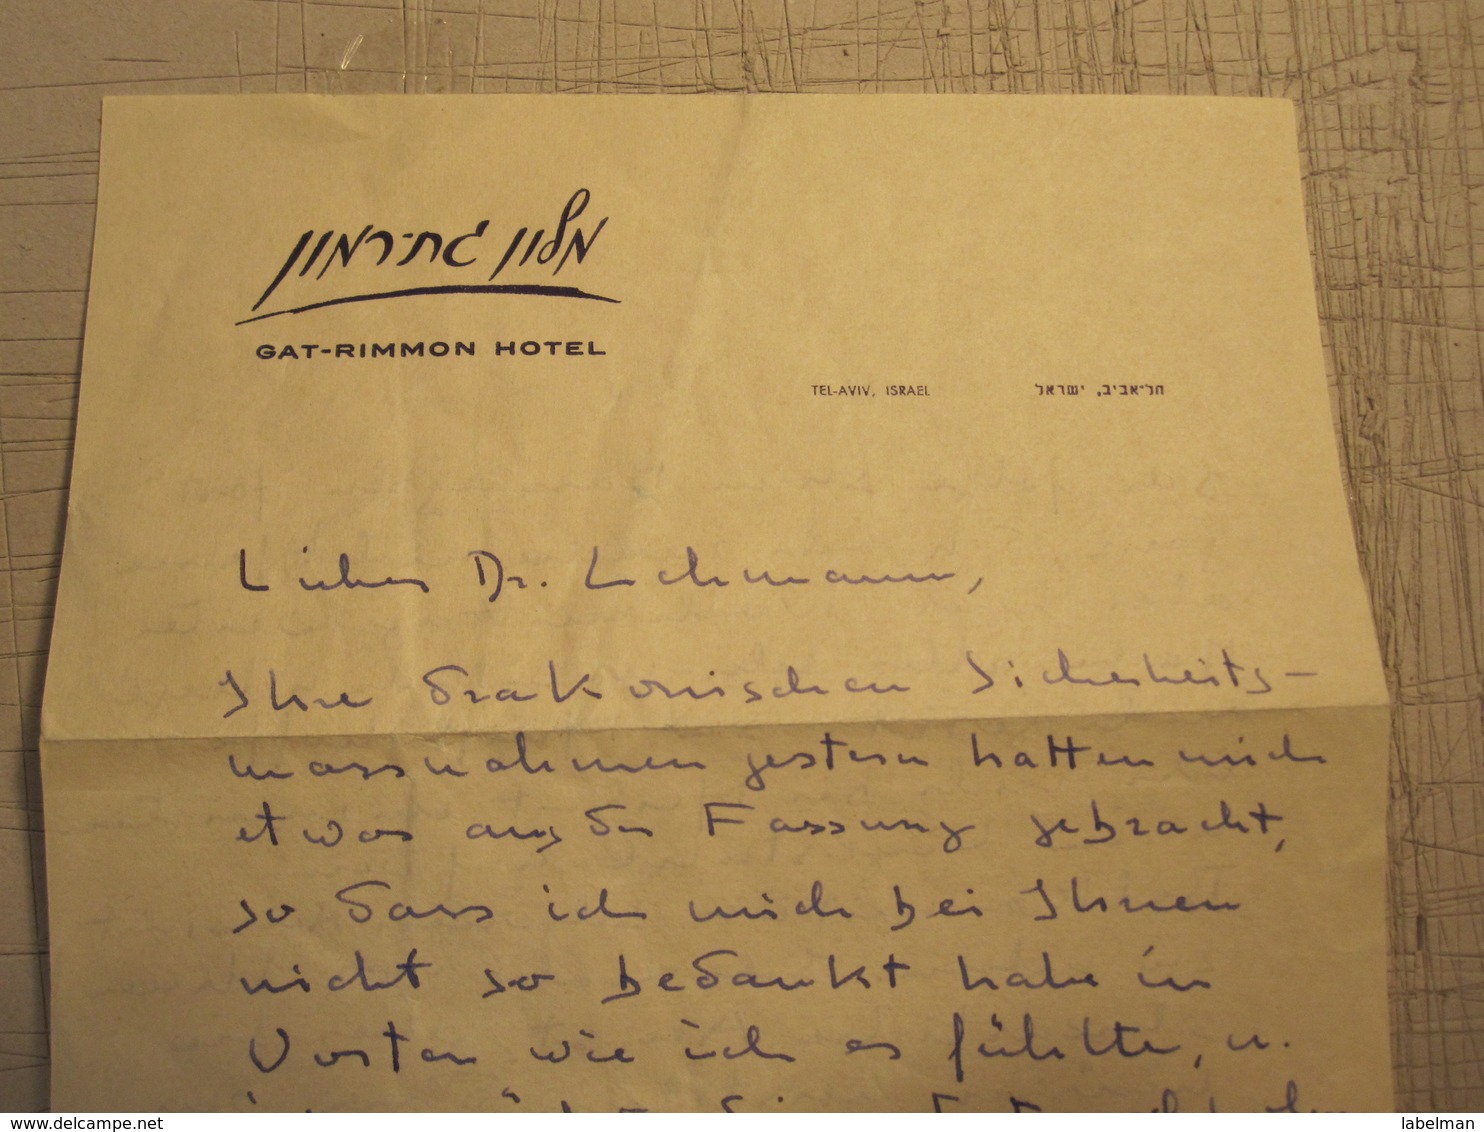 מלון גת-רמון
GAT-RIMMON HOTEL
TEL-AVIV, ISRAEL תל-אביב, ישראל
Lieber Dr. Lachmann,
Ihre drakonischen Sicherheits-
massnahmen gestern hatten mich
etwas aus der Fassung gebracht,
so dass ich mich bei Ihnen
nicht so bedankt habe in
Worten wie ich es fühlte, u.
delcampe.net
labelman